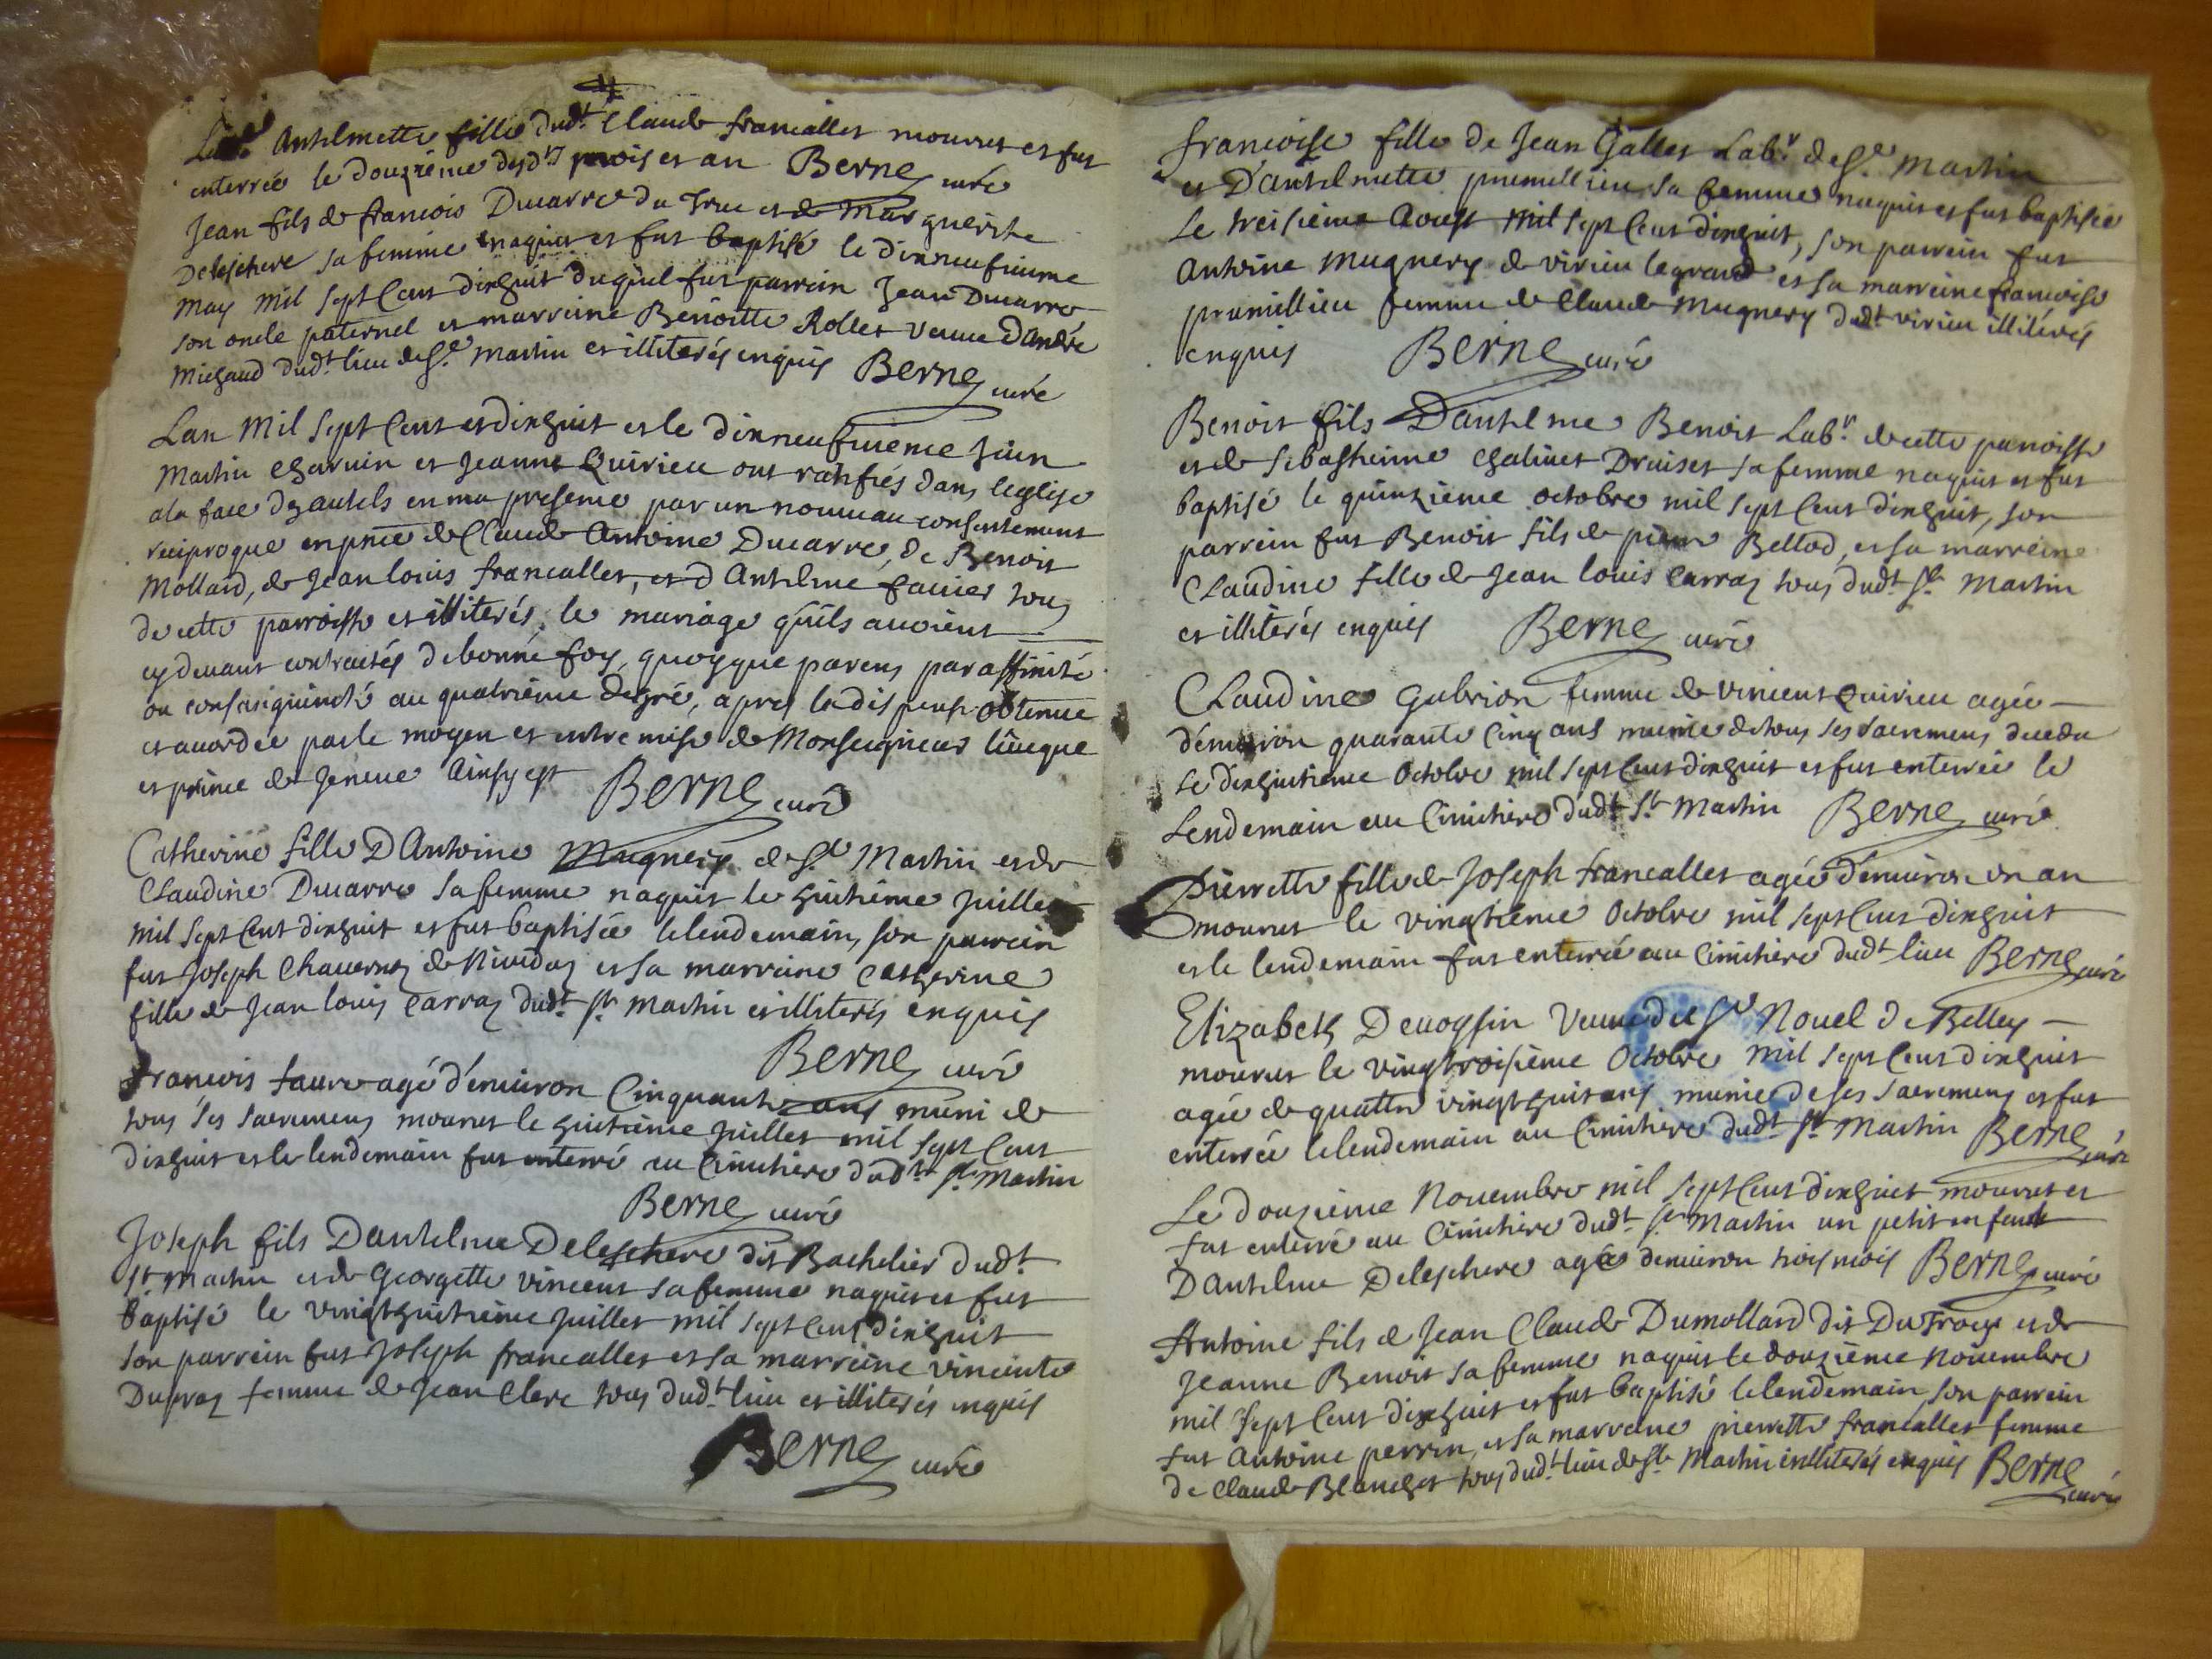 Antelmette fille dudt Claude francallet mourut et fut
enterrée le douzième desdts mois et an Berne curé
Jean fils de francois Ducarre du Truc et de Marguerite
Deleschere sa femme naquit et fut baptisé le dixneufvieme
may mil sept cent dixhuit duquel fut parrein Jean Ducarre
son oncle paternel et marreine Benoitte Rollet veuve D'André
Michaud dudt lieu de St Martin et illiterés enquis Berne curé
Lan Mil sept cent et dixhuit et le dixneufvieme Juin
Martin Charvin et Jeanne Quirieu ont ratifiés dans leglise
a la face des autels en ma presence par un nouveau consentement
reciproque en pnce de Claude Antoine Ducarre, de Benoit
Mollard, de Jean louis francallet, et d'Antelme favier tous
de cette parroisse et illiterés, le mariage qu'ils avoient
cy devant contractés de bonne foy, quoyque parens par affinité
ou consanguinité au quatrieme degré, apres la dispense obtenue
et accordée par le moyen et entremise de Monseigneur l'eveque
et prince de Geneve Ainsy est Berne curé
Catherine fille D'Antoine Mugnery de St Martin et de
Claudine Ducarre sa femme naquit le huitième Juillet
mil sept cent dixhuit et fut baptisée le lendemain, son parrein
fut Joseph Chavernoz de Nividoz et sa marreine Catherine
fille de Jean louis Carraz dudt St Martin et illiterés enquis
Berne curé
francois faure agé d'environ Cinquante ans muni de
tous ses sacremens mourut le huitième Juillet mil sept cent
dixhuit et le lendemain fut enterré au Cimitiere dudt St Martin
Berne curé
Joseph fils D'antelme Deleschere dit Bachelier dudt
St Martin et de Georgette vincent sa femme naquit et fut
baptisé le vingthuitième Juillet mil sept cent dixhuit
son parrein fut Joseph francallet et sa marreine vincente
Dupraz femme de Jean Clerc tous dudt lieu et illiterés enquis
Berne curé
francoise fille de Jean Gallet Labr de St Martin
et D'antelmette premillieu sa femme naquit et fut baptisée
Le treisième Aoust mil sept cent dixhuit, son parrein fut
Antoine Mugnery de virieu le grand et sa marreine francoise
premillieu femme de Claude Mugnery dudt virieu illiterés
enquis Berne curé
Benoit fils D'antelme Benoit Labr de cette paroisse
et de sebastienne Chalivet Druiset sa femme naquit et fut
baptisé le quinzième octobre mil sept cent dixhuit, son
parrein fut Benoit fils de pierre Bellod, et sa marreine
Claudine fille de Jean louis Carraz tous dudt St Martin
et illiterés enquis Berne curé
Claudine Gabrion femme de vincent Quirieu agée
d'environ quarante Cinq ans munie de tous ses sacremens deceda
le dixhuitième Octobre mil sept cent dixhuit et fut enterrée le
lendemain au Cimitiere dudt St Martin Berne curé
Pierrette fille de Joseph francallet agée d'environ un an
mourut le vingtième Octobre mil sept cent dixhuit
et le lendemain fut enterrée au Cimitiere dudt lieu Berne curé
Elizabeth Devoyssin Veuve du Sr Novel de Belley
mourut le vingtroisième Octobre mil sept cent dixhuit
agée de quattre vingt huit ans munie de ses sacremens et fut
enterrée le lendemain au Cimitiere dudt St Martin Berne curé
Le douzième Novembre mil sept cent dixhuit mourut et
fut enterré au Cimitiere dudt St Martin un petit enfant
D'antelme Deleschere agée denviron trois mois Berne curé
Antoine fils de Jean Claude Dumollard dit Du Troup et de
Jeanne Benoit sa femme naquit le douzième Novembre
mil sept cent dixhuit et fut baptisé le lendemain, son parrein
fut Antoine perren, et sa marreine pierrette francallet femme
de Claude Blanchet tous dudt lieu de St Martin et illiterés enquis Berne curé